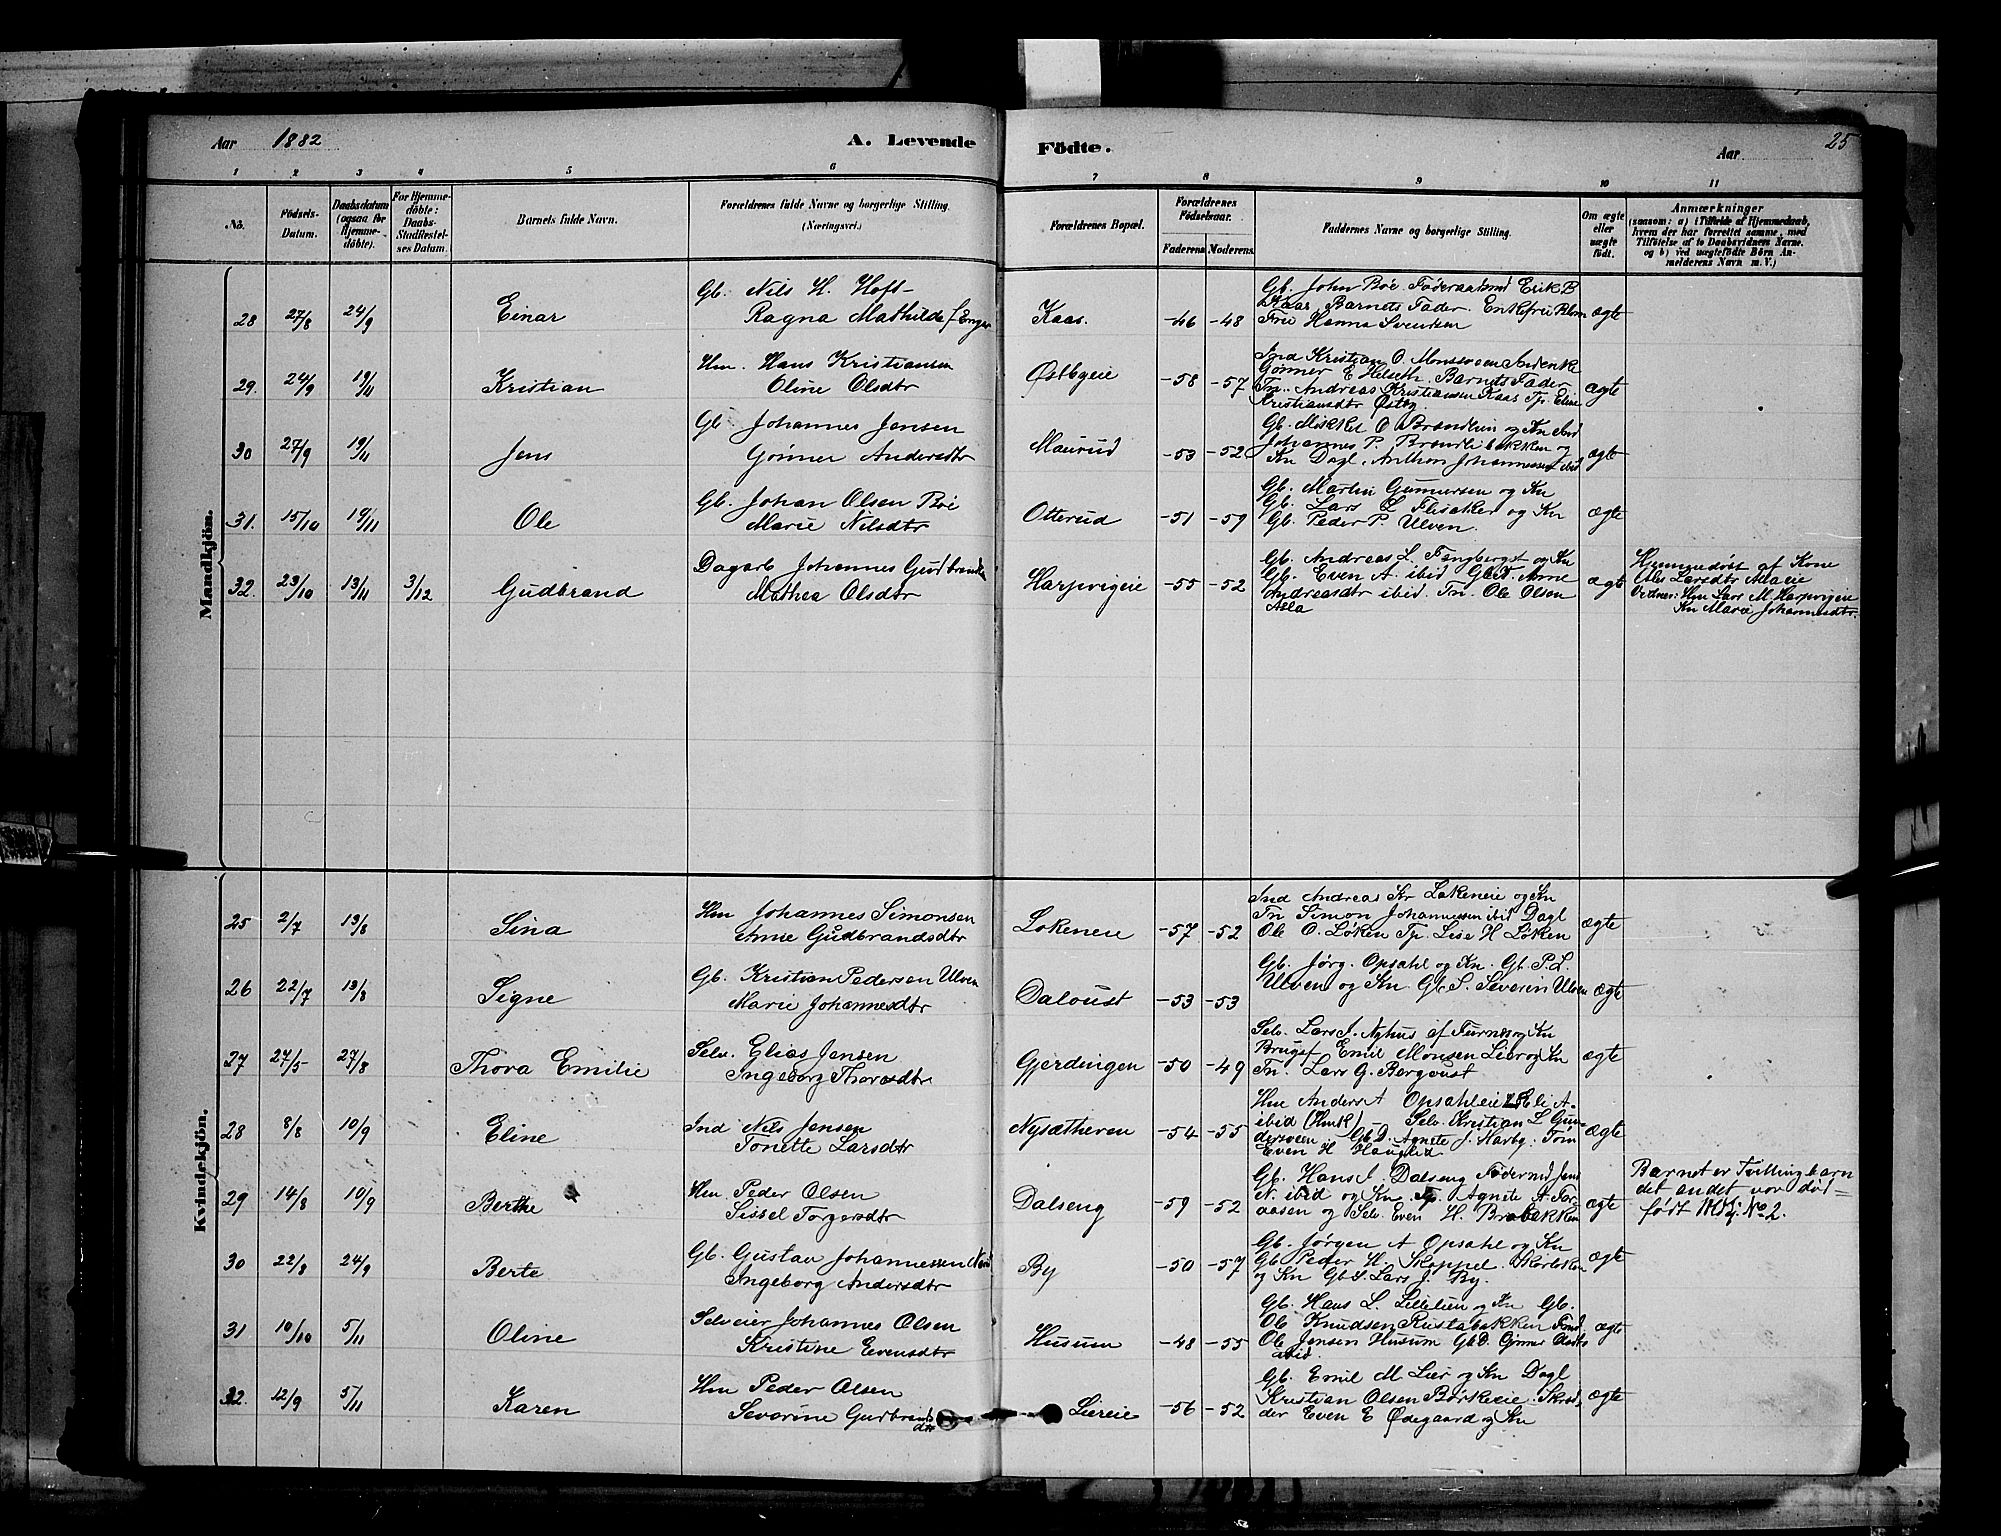 Aar 1882
A. Levende
Fødte.
Aar
25
1
2
3
4
5
6
7
8
9
10
11
No.
Fødsels-Datum.
Daabsdatum (ogsaa for Hjemmedøbte).
For Hjemmedøbte: Daabs-Stadfæstelses Datum.
Barnets fulde Navn.
Forældrenes fulde Navne og borgerlige Stilling. (Næringsvei.)
Forældrenes Bopæl.
Forældrenes Fødselsaar.
Faderens
Moderens
Faddernes Navne og borgerlige Stilling.
Om ægte eller uægte født.
Anmærkninger
(saasom: a) i Tilfælde af Hjemmedaab, hvem der har forrettet samme, med Tilføielse af to Daabsvidners Navne. og b) ved uægtefødte Børn Anmelderens Navn m. V.)
Mandkjön.
28 27/8 24/9 Einar
Gb. Nils H. Hoft
Ragna Mathilde f Enger
Kaas. -46 -48
Gb. John Bøe Føderaadsmd Erik B
Kaas Barnets Fader. Enkefru Blom
Fru Hanna Svendsen
ægte
29. 24/9 19/11 Kristian
Hm. Hans Kristiansen
Oline Olsdtr
Østbyeie -58 -57
Ind Kristian O. Monsveen
Gønner E Helseth. Barnets Fader
Tn. Andreas Kristiansen Kaas Tp. Eline
Kristiansdtr Østby
ægte
30 27/9 19/11 Jens
Gb Johannes Jensen
Gønner Andersdtr
Maurud -53 -52
Gb. Mikkel O Brændlien og Kn ibid
Johannes P. Brændlibakken og
Kn Dagl. Anthon Johannessen ibid
ægte
31. 15/10 19/11 Ole
Gb. Johan Olsen Bøe
Marie Nilsdtr
Otterud -51 -59
Gb. Martin Gunnersen og Kn
Gb. Lars L Flisaker og Kn
Gb. Peder P. Ulven.
ægte
32. 23/10 13/11 3/12 Gudbrand
Dagarb Johannes Gudbrandsen
Mathea Olsdtr
Harpvigeie -55 -52
Gb. Andreas L. Fangberget og Kn
Gb. Even A. ibid GbD. Anne
Andreasdtr ibid. Tn. Ole Olsen
Alla
ægte
Hjemmedøbt af Kone
Larsdtr
Vidner: Hm Lars M. Harpvigeie
Kn Marie Johannesdtr
Kvindekjön.
25 2/7 13/8 Sina
Hm Johannes Simonsen
Anne Gudbrandsdtr
Løkeneie -57 -52
Ind Andreas Kr Løkeneie og Kn
Tn Simon Johannessen ibid Dagl
Ole O. Løken Tp. Lise H Løken
ægte
26 22/7 13/8 Signe
Gb. Kristian Pedersen Ulven
Marie Johannesdtr
Daloust -53 -53
Gb. Jørg. Opsahl og Kn. Gb. P. L.
Ulven og Kn. GbS. Severin Ulven
ægte
27 27/5 27/8 Thora Emilie
Selv. Elias Jensen
Ingeborg Thoresdtr
Gjerdingen -50 -49
Selv. Lars J. Nyhus af Furnes og Kn
Emil Monsen Lier og Kn
Tn. Lars G. Bergoust
ægte
28 8/8 10/9 Eline
Ind Nils Jensen
Tonette Larsdtr
Nysætheren -54 -55
Hm Anders A Opsahleie Eli A.
ibid - Selv. Kristian L Gun-
derveen - GbD. Agnete J. Harby. Tøm
Even H Hauglid
ægte
29 14/8 10/9 Berthe
Hm Peder Olsen
Sissel Torgersdtr
Dalseng -59 -52
Gb. Hans J. Dalseng Fødermd Jens
N. ibid og Kn. Tp Agnete A For-
aasen og Selv. Even H. Brobekken
ægte
Barnet er Tvillingbarn
det andet var død-
født No 2.
30 22/8 24/9 Berte
Gb. Gustav Johannessen
Ingeborg Andersdtr
By -50 -57
Gb. Jørgen A Opsahl og Kn
Gb. Peder H. Skappel.
og Kn GbS. Lars J. By.
ægte
31 10/10 5/11 Oline
Selveier Johannes Olsen
Kristine Evensdtr
Husum -48 -55
Gb. Hans L. Lillelien og Kn Gb.
Ole Knudsen Rustabakken
Ole Jensen Husum GbD. Gønner
ibid.
ægte
32. 12/9 5/11 Karen
Hm Peder Olsen
Severine Gudbrands
dtr
Liereie -56 -52
Gb. Emil M Lier og Kn Dagl
Kristian Olsen Børkeeie. Skræd-
der Even E Ødegaard og Kn
ægte